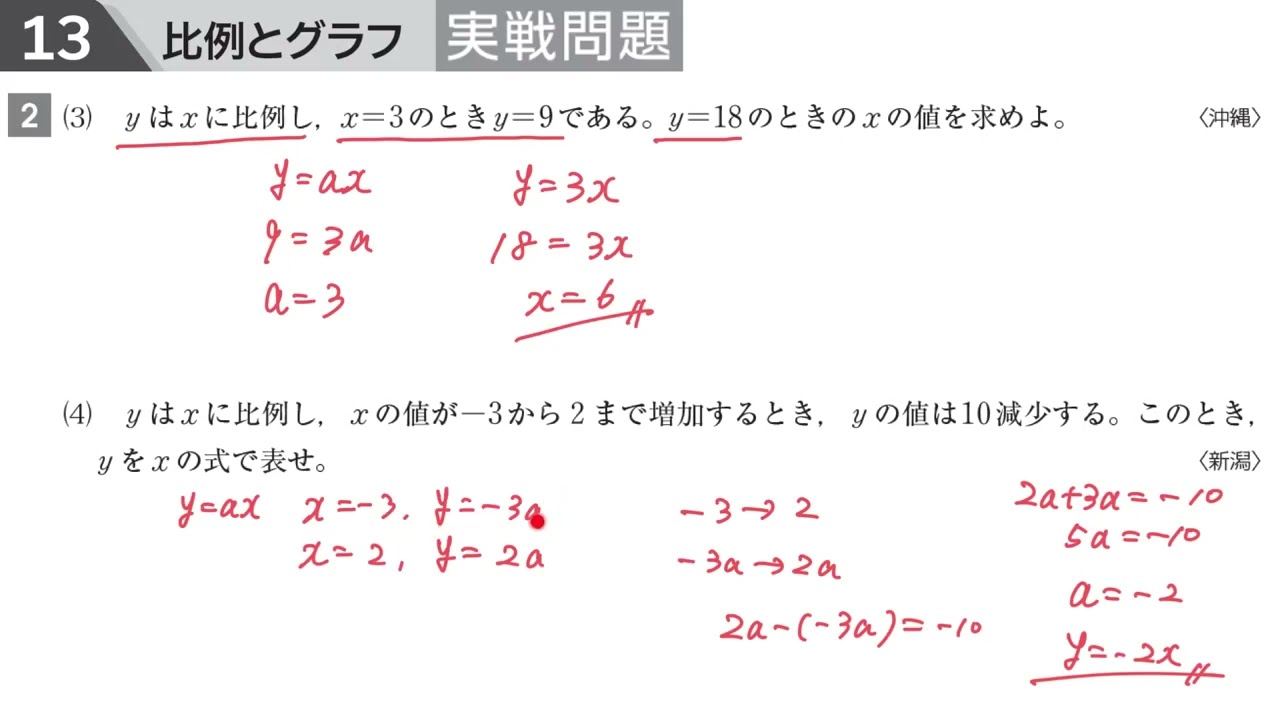 13 比例とグラフ 実戦問題
2 (3) yはxに比例し，x=3のときy=9である。y=18のときのxの値を求めよ。 〈沖縄〉
y=ax y=3x
9=3a 18=3x
a=3 x=6
(4) yはxに比例し，xの値が−3から2まで増加するとき，yの値は10減少する。このとき，
yをxの式で表せ。 〈新潟〉
y=ax x=-3, y=-3a -3→2 2a+3a=-10
x=2, y=2a -3a→2a 5a=-10
2a-(-3a)=-10 a=-2
y=-2x